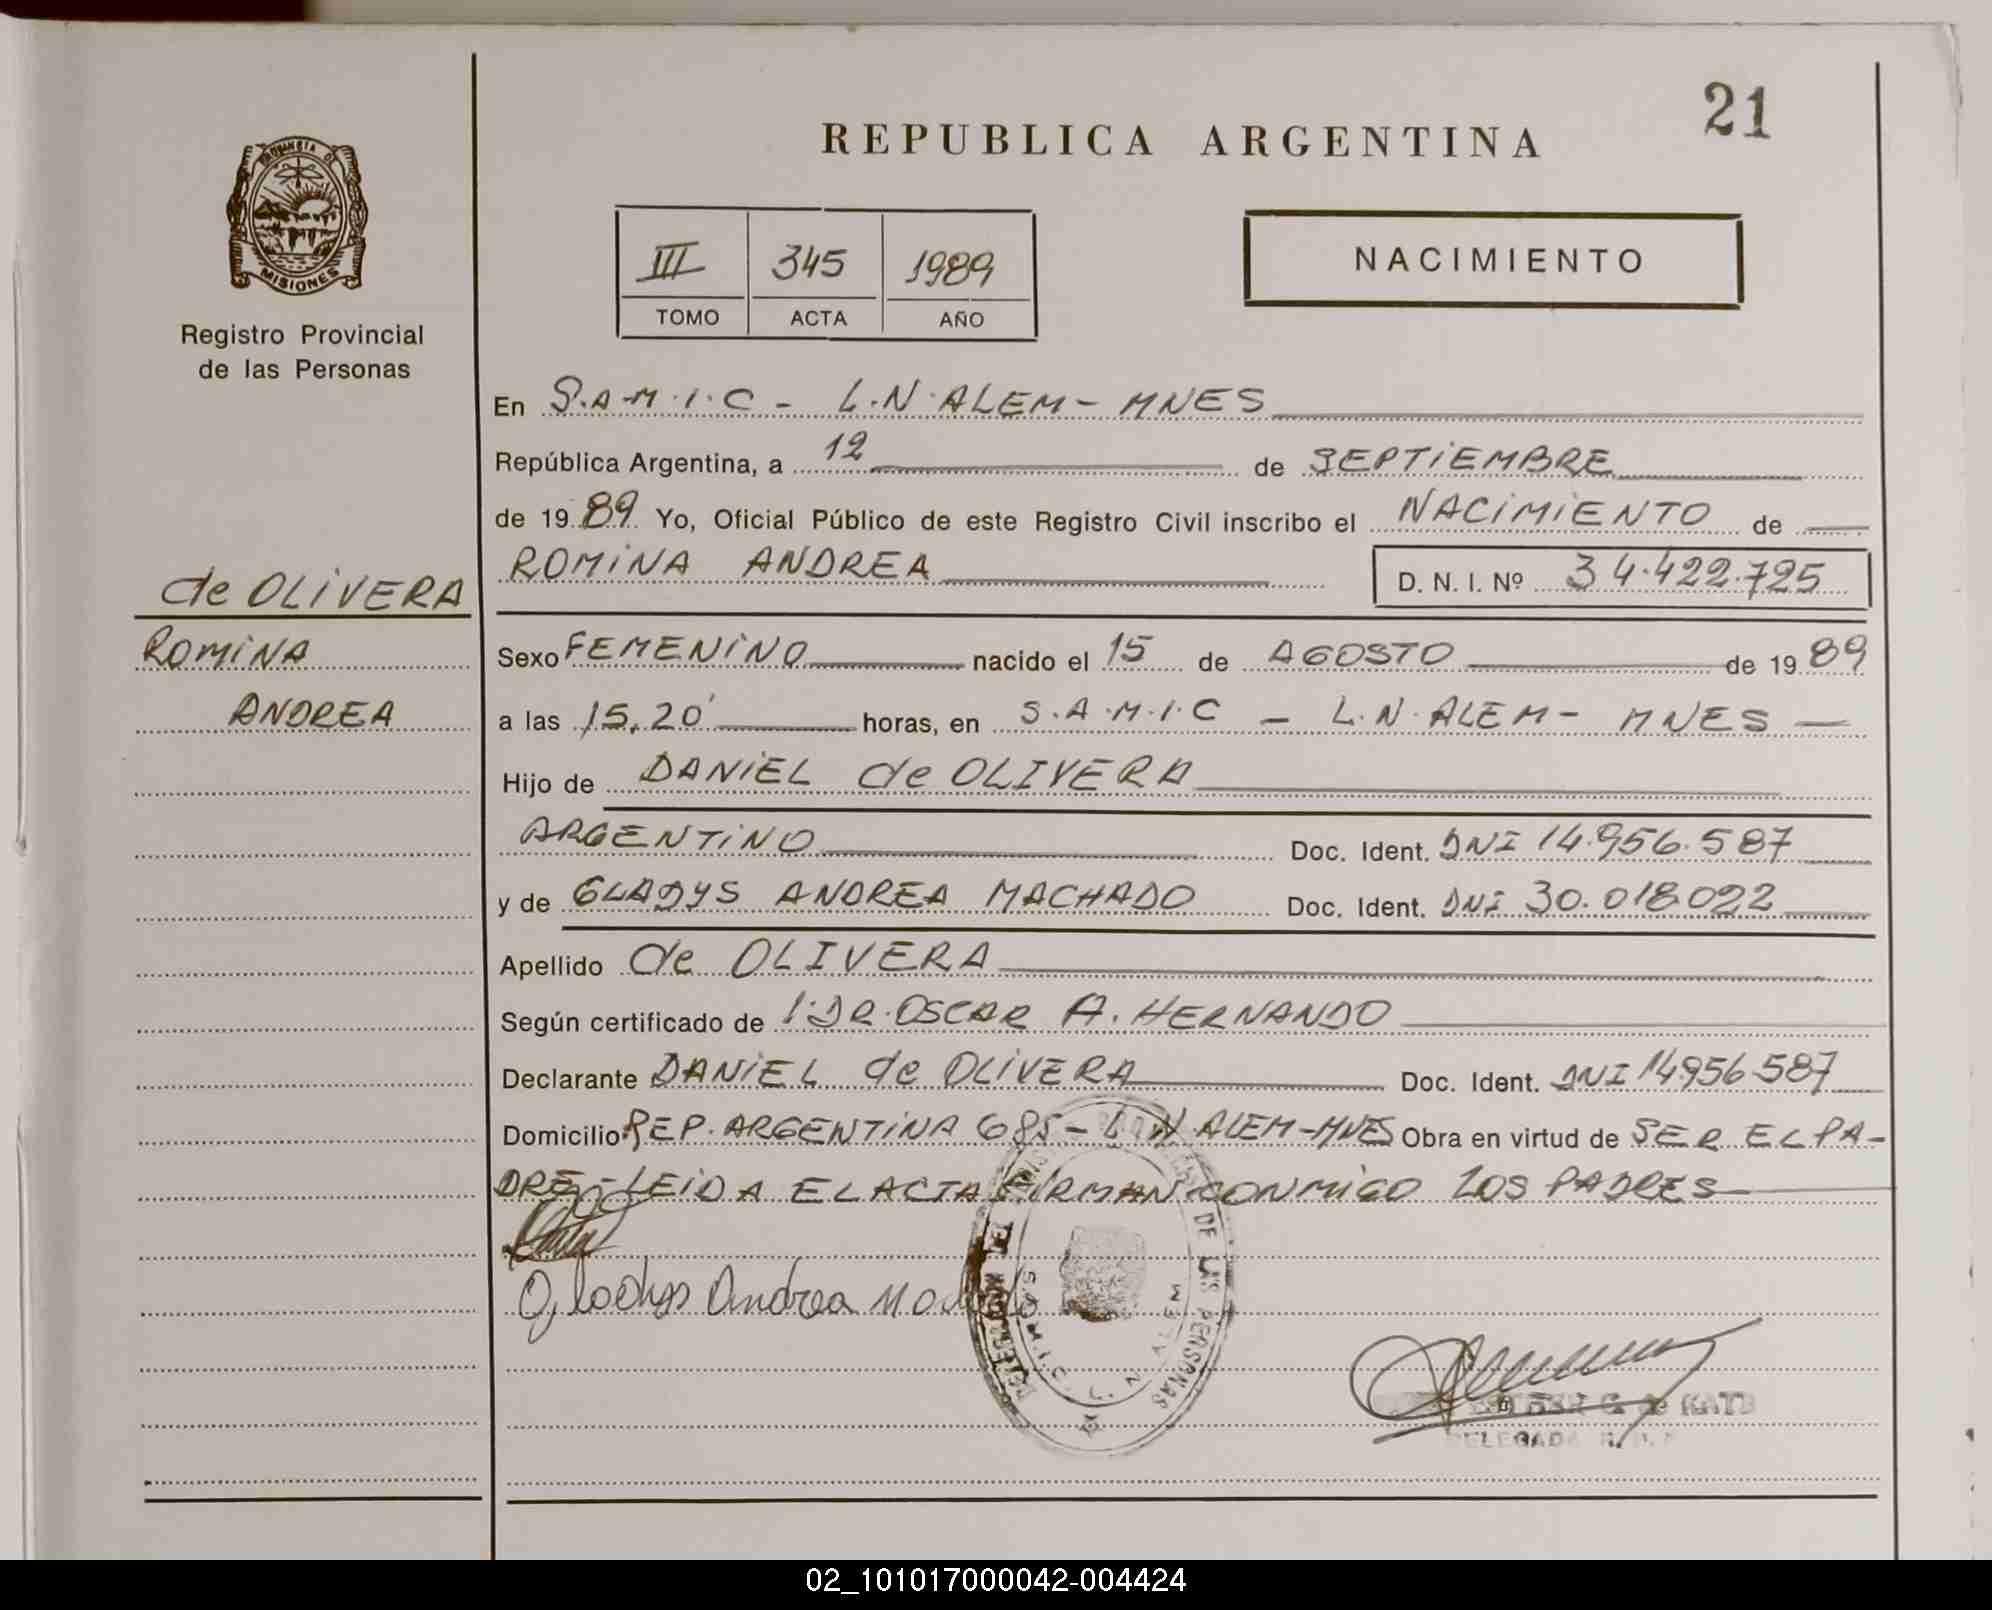 21
REPUBLICA ARGENTINA
PROVINCIA DE
MISIONES
Registro Provincial
de las Personas
III 345 1989
TOMO ACTA AÑO
NACIMIENTO
En S.A.M.I.C - L.N.ALEM - MNES
República Argentina, a 12 de SEPTIEMBRE
de 1989 Yo, Oficial Público de este Registro Civil inscribo el NACIMIENTO de
ROMINA ANDREA D. N. I. Nº 34.422.725
de OLIVERA
ROMINA
ANDREA
Sexo FEMENINO nacido el 15 de AGOSTO de 1989
a las 15,20' horas, en S.A.M.I.C - L.N.ALEM - MNES
Hijo de DANIEL de OLIVERA
ARGENTINO Doc. Ident. DNI 14.956.587
y de GLADYS ANDREA MACHADO Doc. Ident. DNI 30.018.022
Apellido de OLIVERA
Según certificado de 1:DR.OSCAR A. HERNANDO
Declarante DANIEL de OLIVERA Doc. Ident. DNI 14.956.587
Domicilio REP. ARGENTINA 685 - L N ALEM - MNES Obra en virtud de SER EL PA-
DRE - LEIDA EL ACTA FIRMAN CONMIGO LOS PADRES
Gladys Andrea
DE LAS PERSONAS
N. ALEM
DELEGADA
02_101017000042-004424